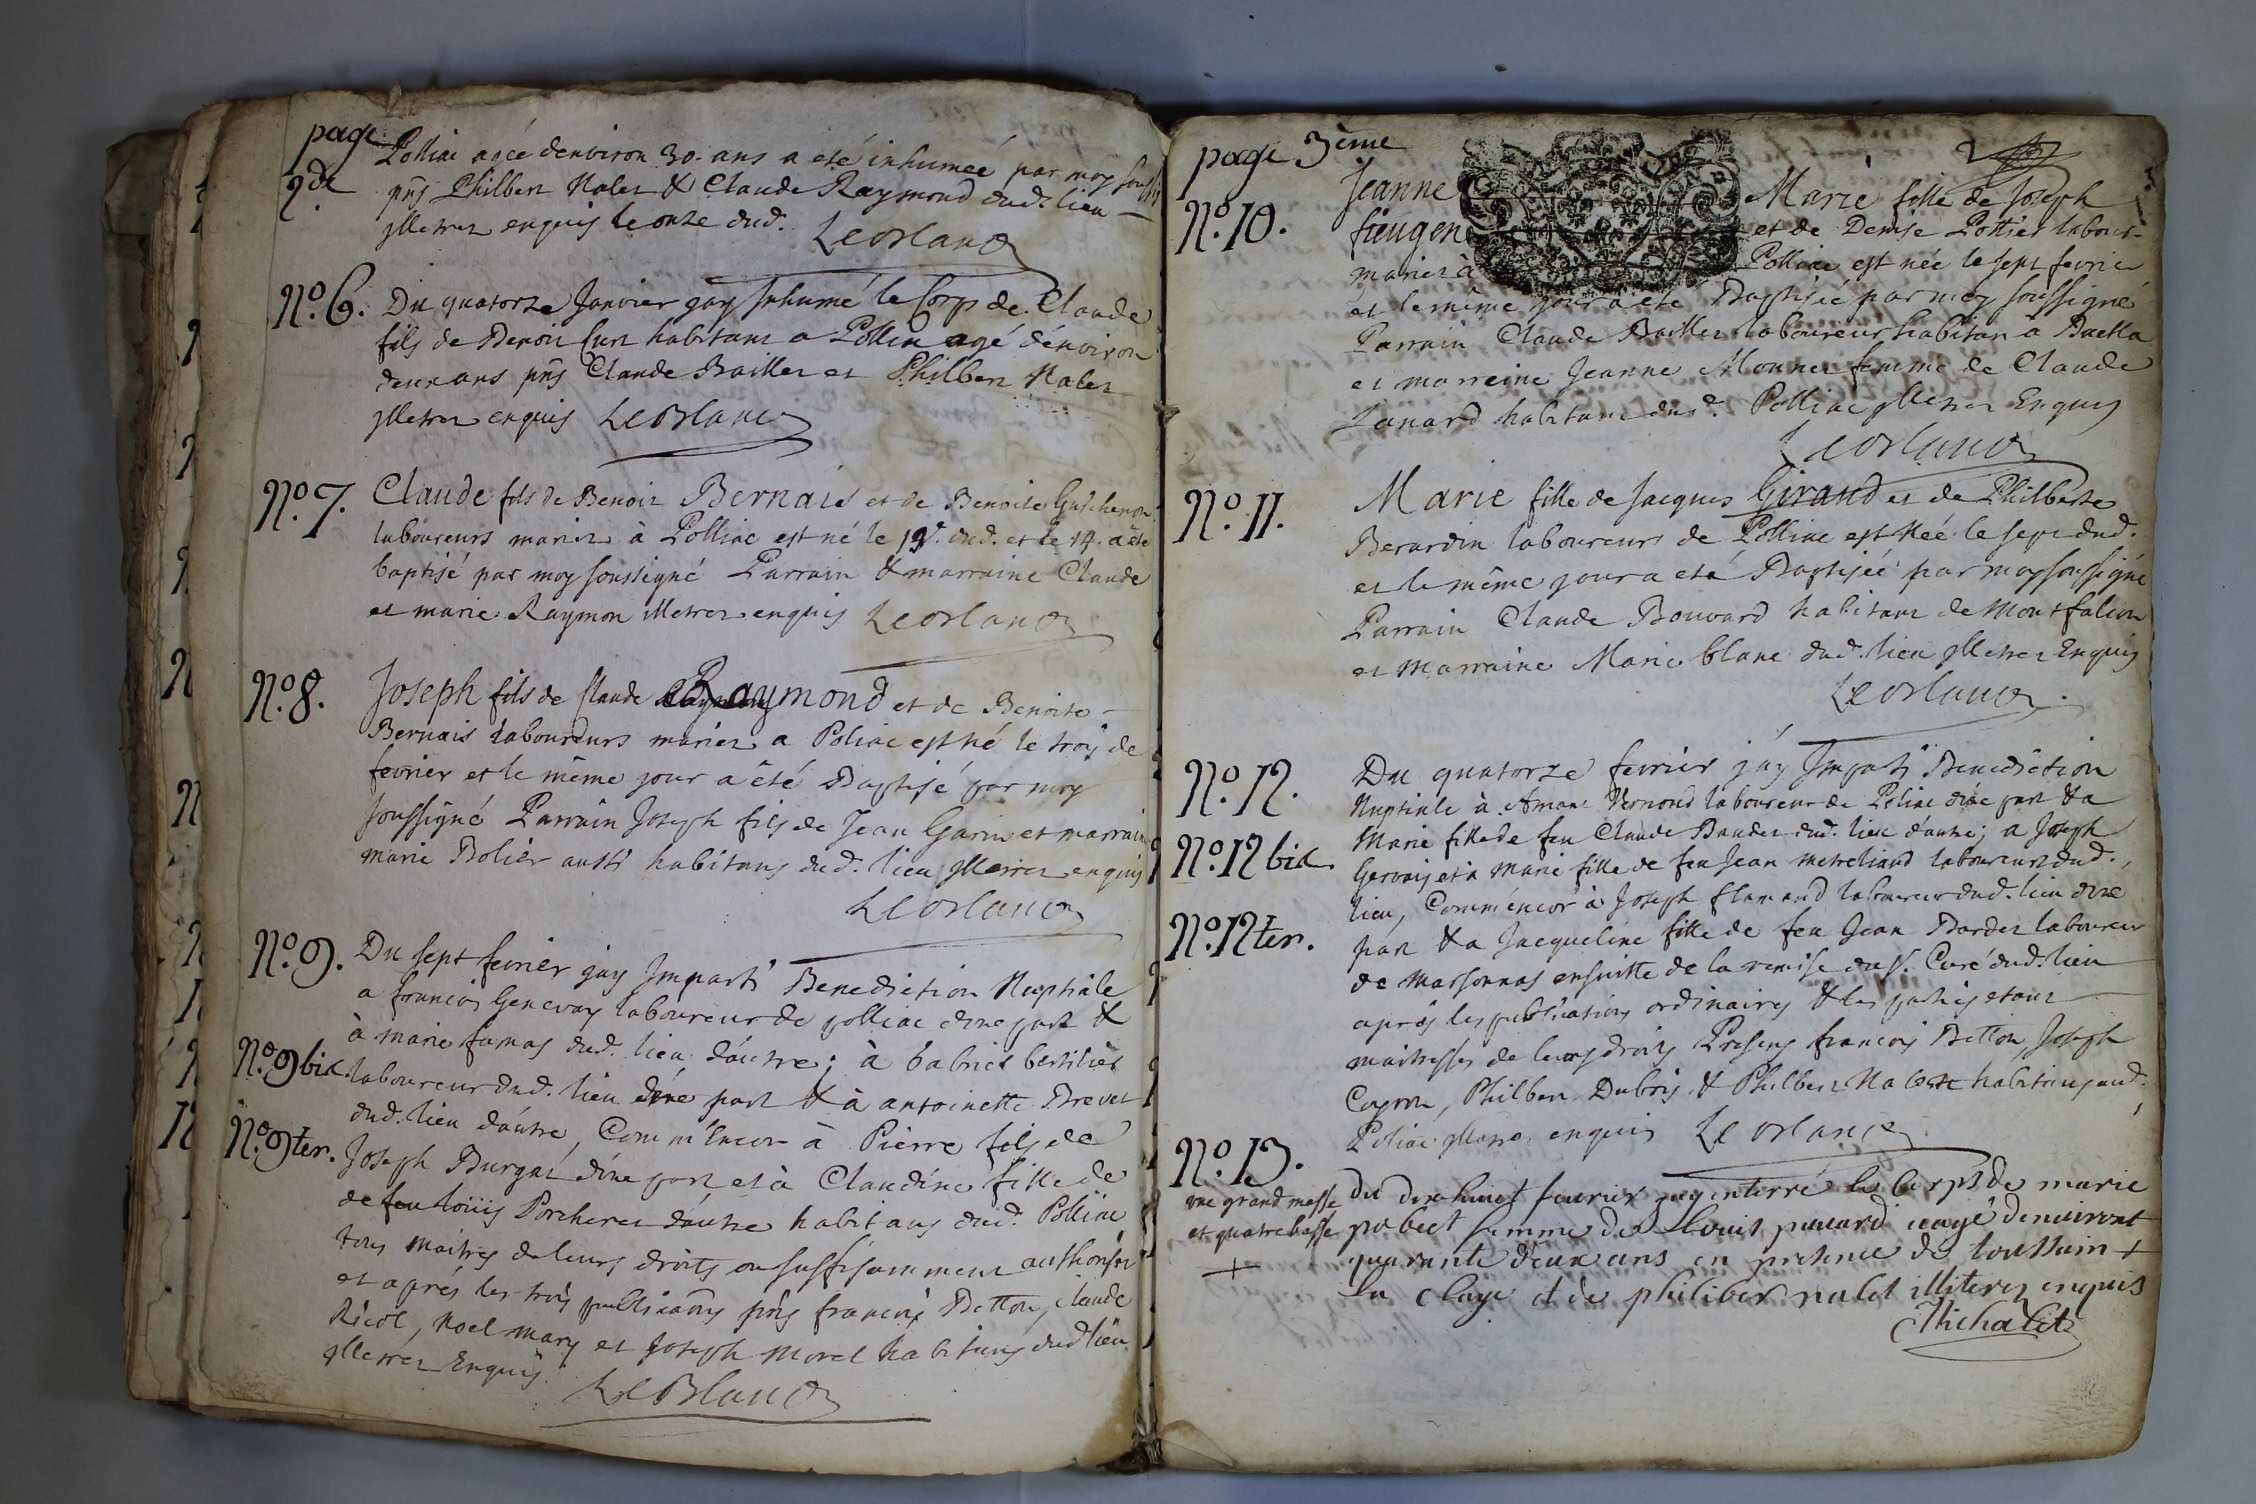 page 2de
Polliac agée denviron 30. ans a eté inhumeé par moy souss
pns Philber Nalet & Claude Raymond dud. lieu
illetrez enquis le onze dud. LeBlanc
No. 6. Du quatorze Janvier jay Inhumé le Corp de Claude
fils de Benoit habitans a Pollia agé d'environ
deux ans pns Claude Bailler et Philber Nalet
illetrez enquis LeBlanc
No. 7. Claude fils de Benoit Bernais et de Benoite Guichenon
laboureurs mariez à Polliac est né le 13e. dud. et le 14. a été
baptisé par moy soussigné Parrain & marraine Claude
et marie Raymon illetrez enquis LeBlanc
No. 8. Joseph fils de Claude Raymond et de Benoite
Bernais laboureurs mariez a Poliac est né le trois de
fevrier et le même jour a été Baptisé par moy
soussigné Parrain Joseph fils de Jean Garin et marraine
marie Bolier aussi habitans dud. lieu illetrez enquis
LeBlanc
No. 9. Du sept fevrier jay Imparti Benediction Nuptiale
a francois Genevay laboureur de polliac d'une part &
à marie famas dud. lieu d'autre; à
No. 9 bis. laboureur dud. lieu d'une part & à antoinette Brevet
dud. lieu d'autre, Comm'Encor à Pierre fils de
No. 9 ter. Joseph Burgat d'une part et à Claudine fille de
de feu Loüis Porcheret d'autre habitans dud. Polliac
tous maitres de leurs droits ou suffisamment authorisez
et aprés les trois publicaons pns francois Betton, claude
Ricol, Noel mary et Joseph Morel habitans dud lieu
illetrez Enquis
LeBlanc
page 3eme
No. 10. Jeanne Marie fille de Joseph
fieugen et de Denise Pottier labour-
mariez à Polliac est née le sept fevrier
et le même jour a eté Baptiseé par moy soussigné
Parrain Claude Bailler laboureur habitan à
et marreine Jeanne Monnet femme de Claude
habitans dud. Polliac illetrez Enquis
LeBlanc
No. 11. Marie fille de Jacques Giraud et de Philberte
Berardin laboureurs de Polliac est Neé le sept dud.
et le même jour a eté Baptiseé par moy soussigné
Parrain Claude Bouvard habitans de Montfalcon
et Marraine Marie blanc dud. lieu illetrez Enquis
LeBlanc
No. 12. Du quatorze fevrier j'ay Imparti Benediction
Nuptiale à Amant laboureur de Poliac d'une part & a
Marie fille de feu Claude Baudet dud. lieu d'autre; a Joseph
No. 12 bis. Gervais et à Marie fille de feu Jean laboureurs dud.
lieu, Comm'encor à Joseph flamand laboureur dud. lieu d'une
No. 12 ter. part & a Jacqueline fille de feu Jean Bardet laboureur
de Marsonnas ensuitte de la remise du Sr. Curé dud. lieu
aprés les publications ordinaires & les parties etant
maitresses de leurs droits Presens francois Betton, Joseph
Philber Dubois & Philber Nalet habitans aud.
Poliac illetrez enquis LeBlanc
No. 13. du dix huict feurier jay interré le corps de marie
une grand messe
et quatre basse
+
probect femme de Louis puuard aagé denuiront
quarante deux ans en presence de toussain
la claye et de philiber nalet illiterez enquis
Michalet